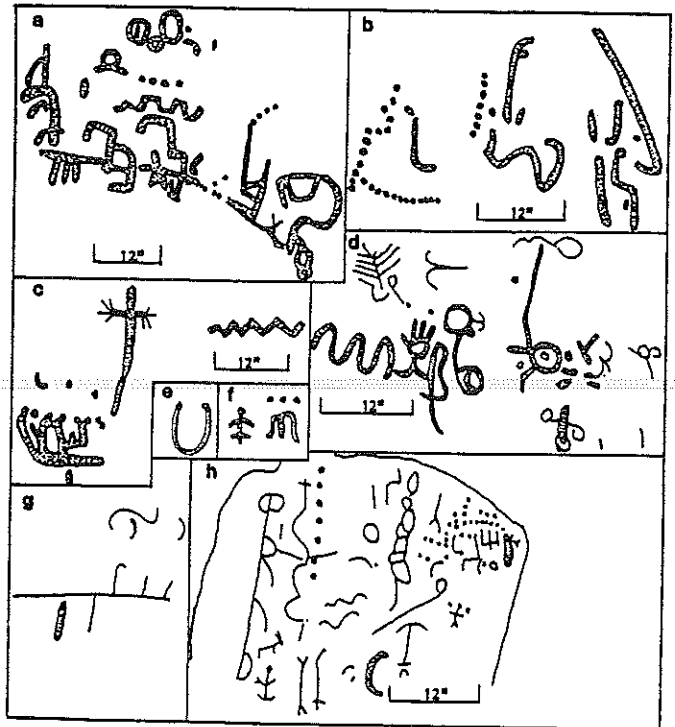 a
b
12"
12"
c
12"
d
12"
e
f
g
h
12"